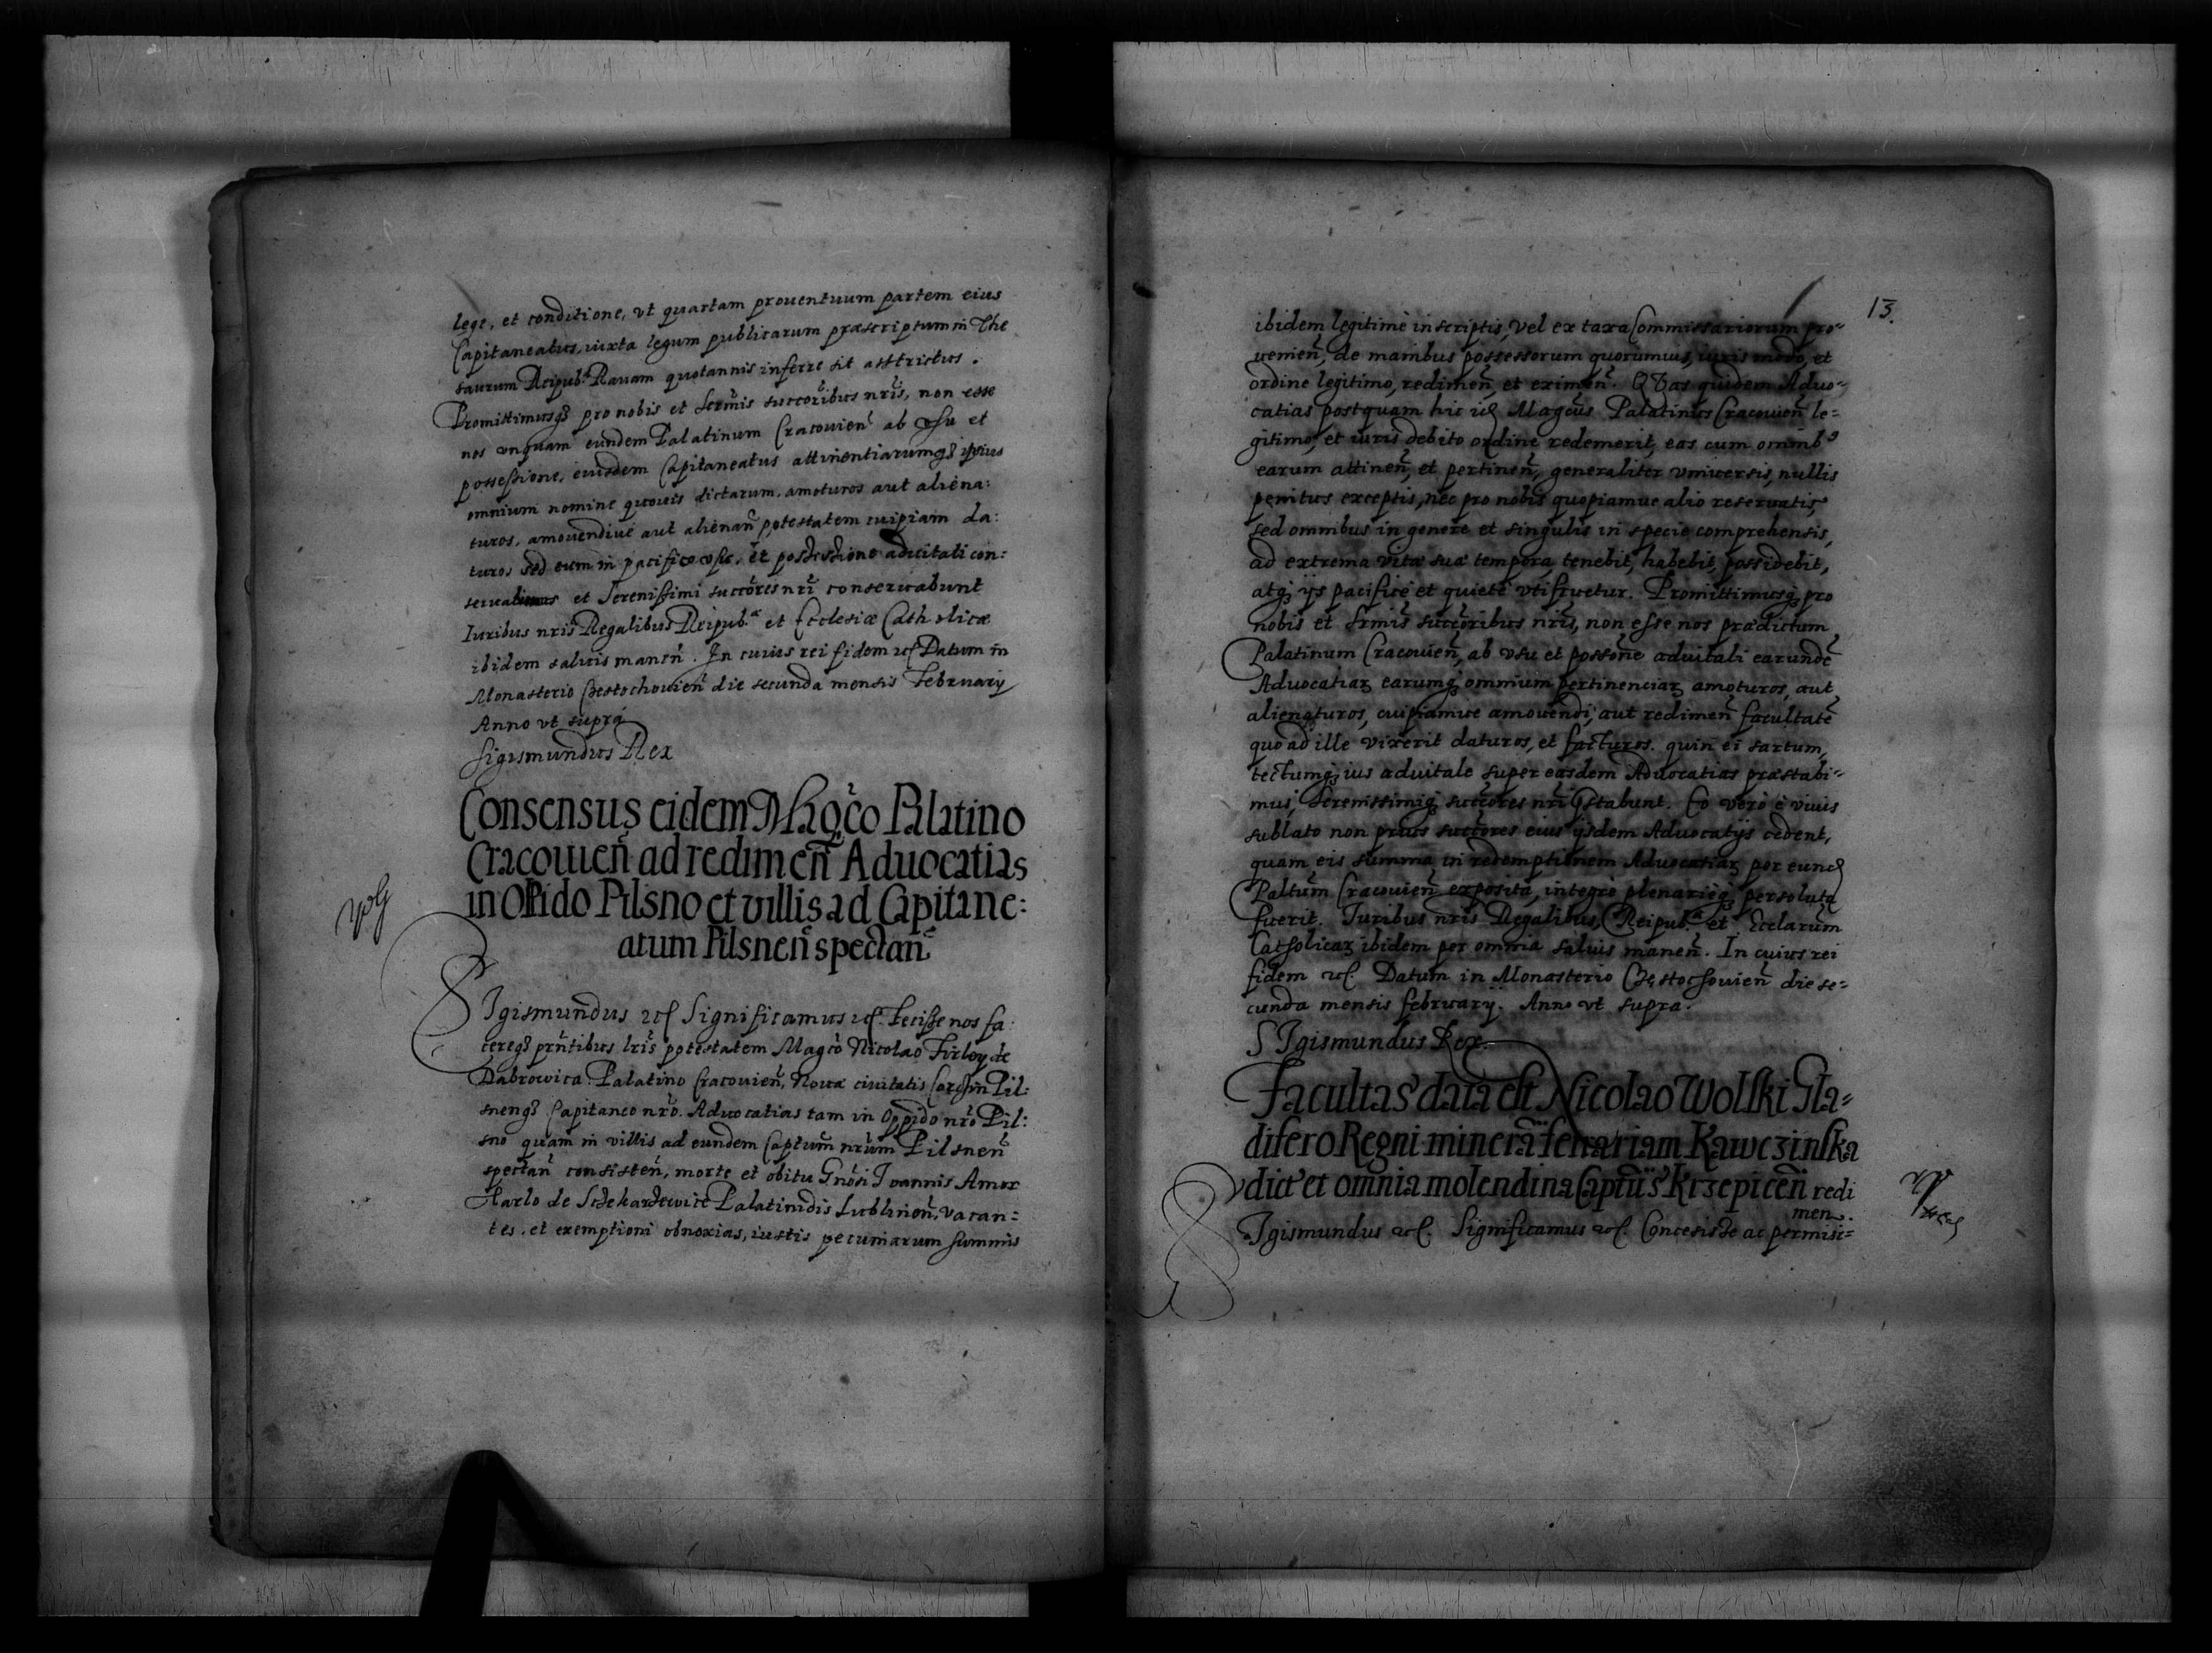 lege, et conditione, vt quartam prouentuum partem eius
Capitaneatus, iuxta legum publicarum præscriptum in The
saurum Reipub.æ Rauam quotannis inferre sit asstrictus.
Promittimusq3 pro nobis et Serm̃is succorib̃us nr̃is, non esse
nos vnquam eundem Palatinum Cracouien̄ ab vsu et
possessione, eiusdem Capitaneatus attinentiarumq3 ipsius
omnium nomine quouis dictarum, amoturos aut aliena:
turos, amouendiue aut alienan̄ potestatem cuipiam da:
turos sed eum in pacifico vsu, et possessione aduitali con:
seruabimus et Serenissimi succõres nr̃i conseruabunt
Iuribus nr̃is Regalibus Reipub.æ et Ecclesiæ Catholicæ
ibidem saluis manen̄. In cuius rei fidem etc Datum in
Monasterio Czestochouien̄ die secunda mensis February
Anno vt supra
Sigismundus Rex
Consensus eidem Mag̃co Palatino
Cracouien̄ ad redimen̄ Aduocatias
in Opido Pilsno et villis ad Capitane:
atum Pilsnen̄ spectan̄
SIgismundus etc Significamus etc. Fecisse nos fa
cereq3 prñtibus lr̃is potestatem Magc̃o Nicolao Firley de
Dabrowica Palatino Cracouien̄, Nouæ ciuitatis Corczin Pil:
snenq3 Capitaneo nr̃o. Aduocatias tam in Oppido nr̃o Pil:
sno quam in villis ad eundem Captum̃ nr̃um Pilsnen̄
spectan̄ consisten̄, morte et obitu Gñosi Ioannis Amor
Tarlo de Sczekarzewice Palatinidis Lublinen̄, vacan=
tes, et exemptioni obnoxias, iustis pecuniarum summis
13.
ibidem legitime inscriptis, vel ex taxa Commissariorum pro=
uenien̄, de manibus possessorum quorumuis, iuris modo, et
ordine legitimo, redimen̄, et eximen̄. QVas quidem Aduo=
catias postquam hic id Magcus Palatinus Cracouien̄ le=
gitimo, et iuris debito ordine redemerit, eas cum omnib9
earum attinen̄, et pertinen̄, generaliter vniuersis, nullis
penitus exceptis, nec pro nobis quopiamue alio reseruatis,
sed omnibus in genere et singulis in specie comprehensis,
ad extrema vitæ suæ tempora, tenebit, habebit, possidebit,
atq3 ijs pacificè et quietè vtifruetur. Promittimusq3 pro
nobis et Srm̃is succõribus nr̃is, non esse nos prædictum
Palatinum Cracouien̄, ab vsu et possoñe aduitali earundẽ
Aduocatiaꝝ earumq3 omnium pertinenciaꝝ amoturos, aut
alienaturos, cuipiamue amouendi, aut redimen̄ facultatẽ
quoad ille vixerit daturos, et facturos. quin ei sartum,
tectumq3 ius aduitale super easdem Aduocatias præstabi=
mus, Serenissimiq3 succõres nr̃i p̃stabunt. Eo verò è viuis
sublato non prius succõres eius ijsdem Aduocatijs cedent,
quam eis summa in redemptionem Aduocatiaꝝ per eund
Paltum̃ Cracouien̄ exposita, integrè plenarieq3 persoluta
fuerit. Iuribus nr̃is Regalibus, Reipub.æ et Ecclarum̃
Catholicaꝝ ibidem per omnia saluis manen̄. In cuius rei
fidem etc. Datum in Monasterio Czestochouien̄ die se=
cunda mensis february. Anno vt supra.
SIgismundus Rex.
Facultas data est Nicolao Wolski Gla=
difero Regni minerã ferrariam Kawczinska
dict et omnia molendina Captũs Krzepicen̄ redi
men.
SIgismundus etc. Significamus etc. Concessisse ac permisis=